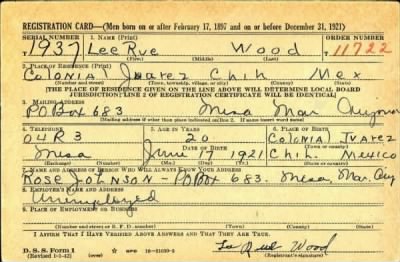 REGISTRATION CARD—(Men born on or after February 17, 1897 and on or before December 31, 1921)
SERIAL NUMBER 1. NAME (Print) ORDER NUMBER
T 1937 Lee Rue Wood 11722
(First) (Middle) (Last)
2. PLACE OF RESIDENCE (Print)
Colonial Juarez Chih Mex
(Number and street) (Town, township, village, or city) (County) (State)
[THE PLACE OF RESIDENCE GIVEN ON THE LINE ABOVE WILL DETERMINE LOCAL BOARD
JURISDICTION; LINE 2 OF REGISTRATION CERTIFICATE WILL BE IDENTICAL]
3. MAILING ADDRESS
PO Box 683 Mesa Mar
[Mailing address if other than place indicated on line 2. If same insert word same]
4. TELEPHONE 5. AGE IN YEARS 6. PLACE OF BIRTH
04R3 20 Colonial Juarez
DATE OF BIRTH (Town or county)
Mesa June 17 1921 Chih. Mexico
(Exchange) (Number) (Mo.) (Day) (Yr.) (State or country)
7. NAME AND ADDRESS OF PERSON WHO WILL ALWAYS KNOW YOUR ADDRESS
Rose Johnson PO Box 683. Mesa, Mar.
8. EMPLOYER'S NAME AND ADDRESS
Unemployed
9. PLACE OF EMPLOYMENT OR BUSINESS
(Number and street or R. F. D. number) (Town) (County) (State)
I AFFIRM THAT I HAVE VERIFIED ABOVE ANSWERS AND THAT THEY ARE TRUE.
D. S. S. Form 1 Wood
(Revised 1-1-42) (over) (Registrant's signature)